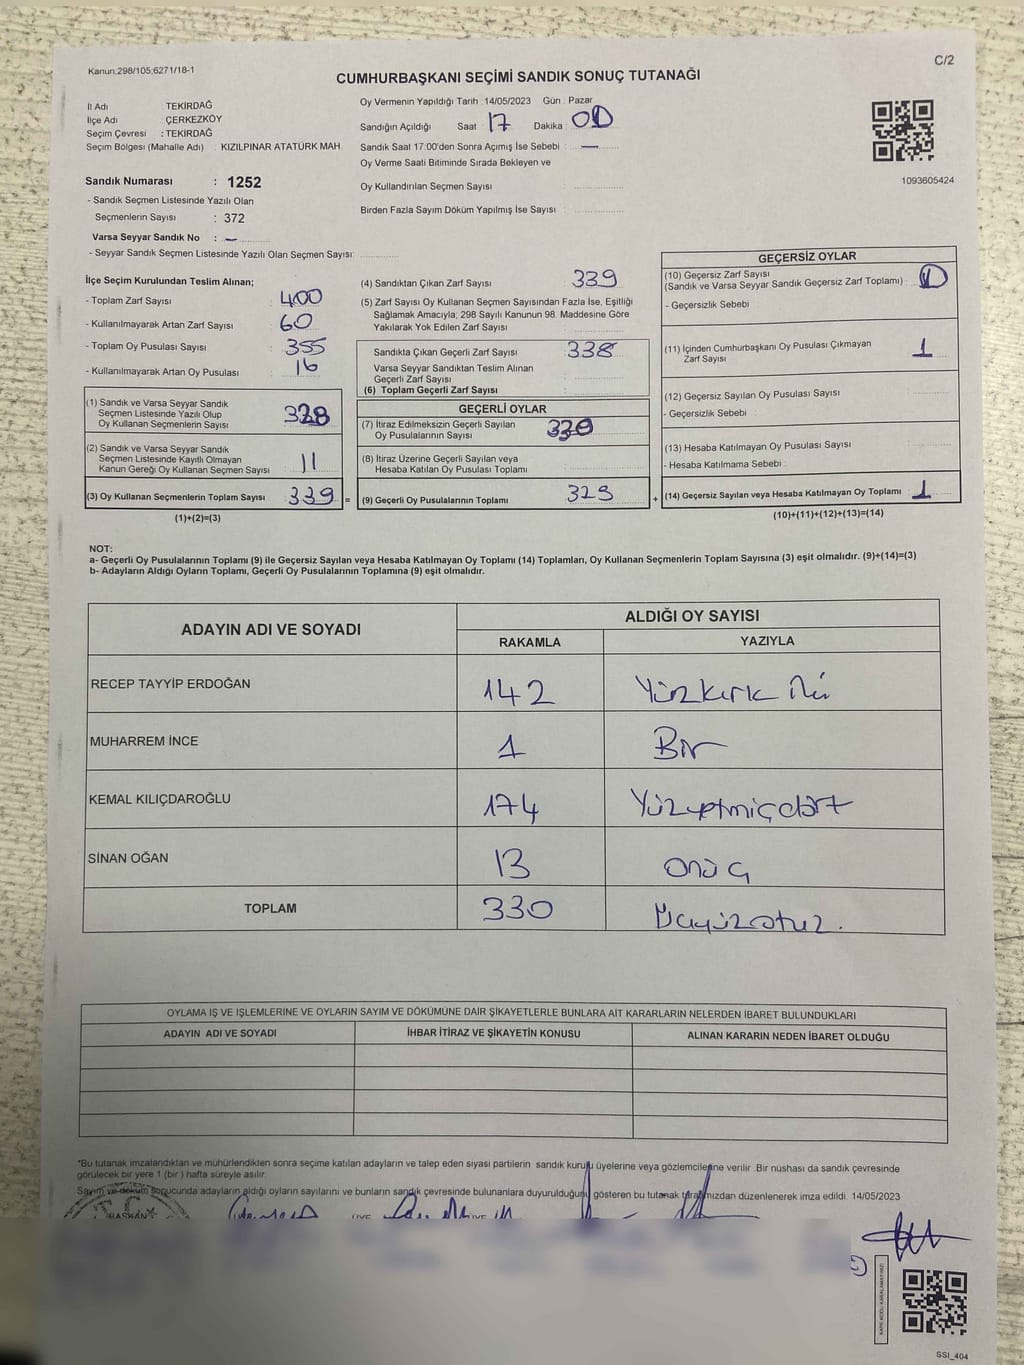 Kanun,298/105;6271/18-1
C/2
CUMHURBAŞKANI SEÇİMİ SANDIK SONUÇ TUTANAĞI
İl Adı TEKİRDAĞ
İlçe Adı : ÇERKEZKÖY
Seçim Çevresi : TEKİRDAĞ
Seçim Bölgesi (Mahalle Adı) : KIZILPINAR ATATÜRK MAH.
Oy Vermenin Yapıldığı Tarih : 14/05/2023 Gün : Pazar
Sandığın Açıldığı Saat : 17 Dakika : 00
Sandık Saat 17:00'den Sonra Açımış İse Sebebi : —
Oy Verme Saati Bitiminde Sırada Bekleyen ve
Oy Kullandırılan Seçmen Sayısı :
Birden Fazla Sayım Döküm Yapılmış İse Sayısı :
1093605424
Sandık Numarası : 1252
- Sandık Seçmen Listesinde Yazılı Olan
Seçmenlerin Sayısı : 372
Varsa Seyyar Sandık No : —
- Seyyar Sandık Seçmen Listesinde Yazılı Olan Seçmen Sayısı:
İlçe Seçim Kurulundan Teslim Alınan;
- Toplam Zarf Sayısı : 400
- Kullanılmayarak Artan Zarf Sayısı : 60
- Toplam Oy Pusulası Sayısı : 355
- Kullanılmayarak Artan Oy Pusulası : 16
(1) Sandık ve Varsa Seyyar Sandık
Seçmen Listesinde Yazılı Olup
Oy Kullanan Seçmenlerin Sayısı : 328
(2) Sandık ve Varsa Seyyar Sandık
Seçmen Listesinde Kayıtlı Olmayan
Kanun Gereği Oy Kullanan Seçmen Sayısı : 11
(3) Oy Kullanan Seçmenlerin Toplam Sayısı : 339 =
(1)+(2)=(3)
(4) Sandıktan Çıkan Zarf Sayısı : 339
(5) Zarf Sayısı Oy Kullanan Seçmen Sayısından Fazla İse, Eşitliği
Sağlamak Amacıyla; 298 Sayılı Kanunun 98. Maddesine Göre
Yakılarak Yok Edilen Zarf Sayısı :
Sandıkta Çıkan Geçerli Zarf Sayısı : 338
Varsa Seyyar Sandıktan Teslim Alınan
Geçerli Zarf Sayısı :
(6) Toplam Geçerli Zarf Sayısı :
GEÇERLİ OYLAR
(7) İtiraz Edilmeksizin Geçerli Sayılan
Oy Pusulalarının Sayısı : 330
(8) İtiraz Üzerine Geçerli Sayılan veya
Hesaba Katılan Oy Pusulası Toplamı :
(9) Geçerli Oy Pusulalarının Toplamı : 329 +
GEÇERSİZ OYLAR
(10) Geçersiz Zarf Sayısı
(Sandık ve Varsa Seyyar Sandık Geçersiz Zarf Toplamı) :
- Geçersizlik Sebebi :
(11) İçinden Cumhurbaşkanı Oy Pusulası Çıkmayan
Zarf Sayısı : 1
(12) Geçersiz Sayılan Oy Pusulası Sayısı :
- Geçersizlik Sebebi :
(13) Hesaba Katılmayan Oy Pusulası Sayısı :
- Hesaba Katılmama Sebebi :
(14) Geçersiz Sayılan veya Hesaba Katılmayan Oy Toplamı : 1
(10)+(11)+(12)+(13)=(14)
NOT:
a- Geçerli Oy Pusulalarının Toplamı (9) ile Geçersiz Sayılan veya Hesaba Katılmayan Oy Toplamı (14) Toplamları, Oy Kullanan Seçmenlerin Toplam Sayısına (3) eşit olmalıdır. (9)+(14)=(3)
b- Adayların Aldığı Oyların Toplamı, Geçerli Oy Pusulalarının Toplamına (9) eşit olmalıdır.
ADAYIN ADI VE SOYADI ALDIĞI OY SAYISI
RAKAMLA YAZIYLA
RECEP TAYYİP ERDOĞAN 142 Yüzkırk iki
MUHARREM İNCE 1 Bir
KEMAL KILIÇDAROĞLU 174 Yüzyetmişdört
SİNAN OĞAN 13 onüç
TOPLAM 330 Üçyüzotuz.
OYLAMA İŞ VE İŞLEMLERİNE VE OYLARIN SAYIM VE DÖKÜMÜNE DAİR ŞİKAYETLERLE BUNLARA AİT KARARLARIN NELERDEN İBARET BULUNDUKLARI
ADAYIN ADI VE SOYADI İHBAR İTİRAZ VE ŞİKAYETİN KONUSU ALINAN KARARIN NEDEN İBARET OLDUĞU
*Bu tutanak imzalandıktan ve mühürlendikten sonra seçime katılan adayların ve talep eden siyasi partilerin sandık kurulu üyelerine veya gözlemcilerine verilir. Bir nüshası da sandık çevresinde
görülecek bir yere 1 (bir) hafta süreyle asılır.
Sayım ve döküm sonucunda adayların aldığı oyların sayılarını ve bunların sandık çevresinde bulunanlara duyurulduğunu gösteren bu tutanak tarafımızdan düzenlenerek imza edildi. 14/05/2023
BAŞKAN ÜYE ÜYE
SSI_404